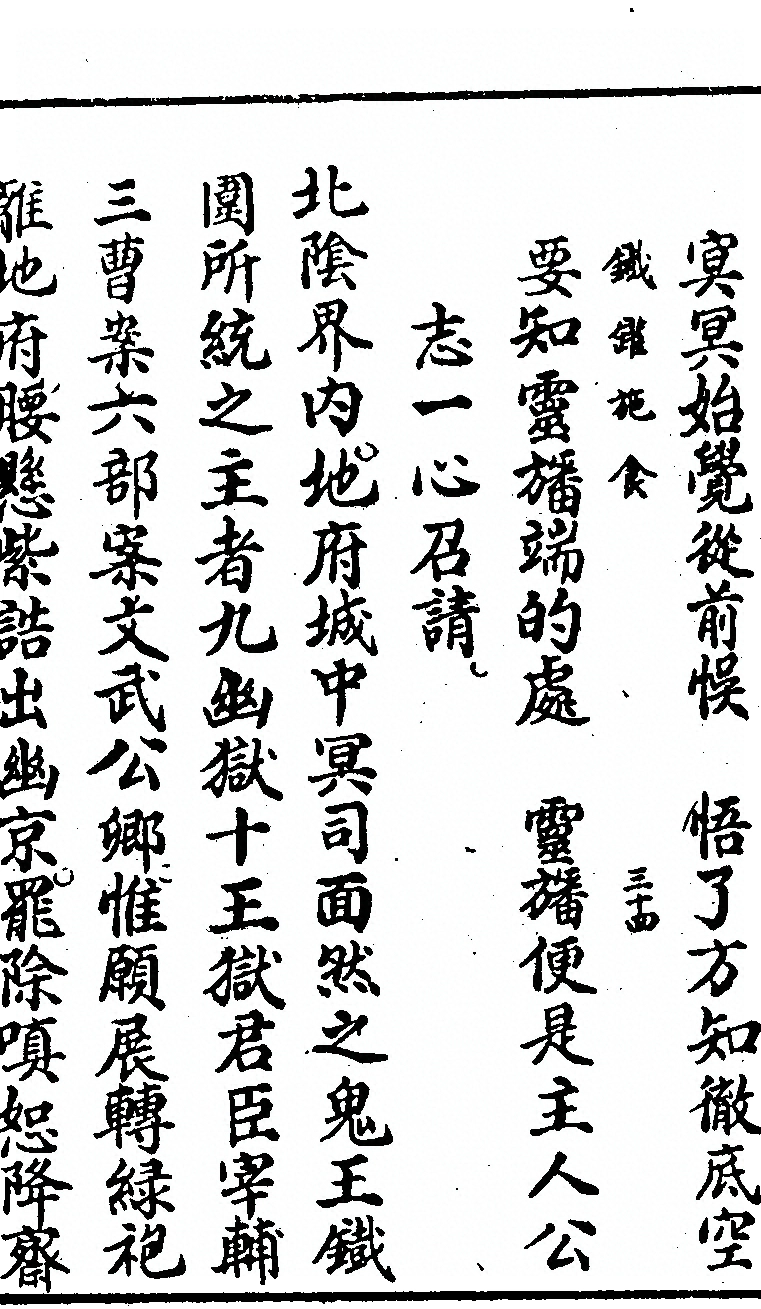 寞冥始覺從前悞　悟了方知徹底空
鐵鑵施食　三十四
要知靈旛端的處　靈旛便是主人公
志一心召請
北陰界内地府城中冥司面然之鬼王鐵
圍所統之主者九幽獄十王獄君臣宰輔
三曹案六部案文武公卿惟願展轉緑袍
離地府腰懸紫誥出幽京罷除嗔恕降齋